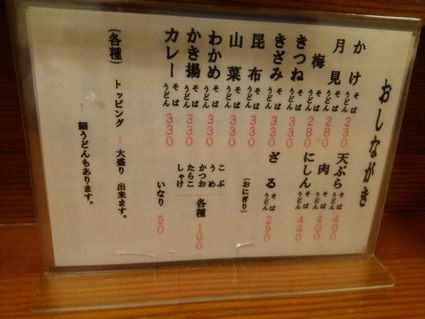 おしながき
かけ そば うどん 230
月見 そば うどん 280
梅 そば うどん 280
きつね そば うどん 330
きざみ そば うどん 330
昆布 そば うどん 330
山菜 そば うどん 330
わかめ そば うどん 330
かき揚 そば うどん 330
カレー そば うどん 330
天ぷら そば うどん 400
肉 そば うどん 400
にしん そば うどん 440
ざる そば うどん 290
(おにぎり)
こぶ
うめ
かつお
たらこ
しゃけ
各種 100
いなり 50
(各種) トッピング 大盛り 出来ます。
細うどんもあります。